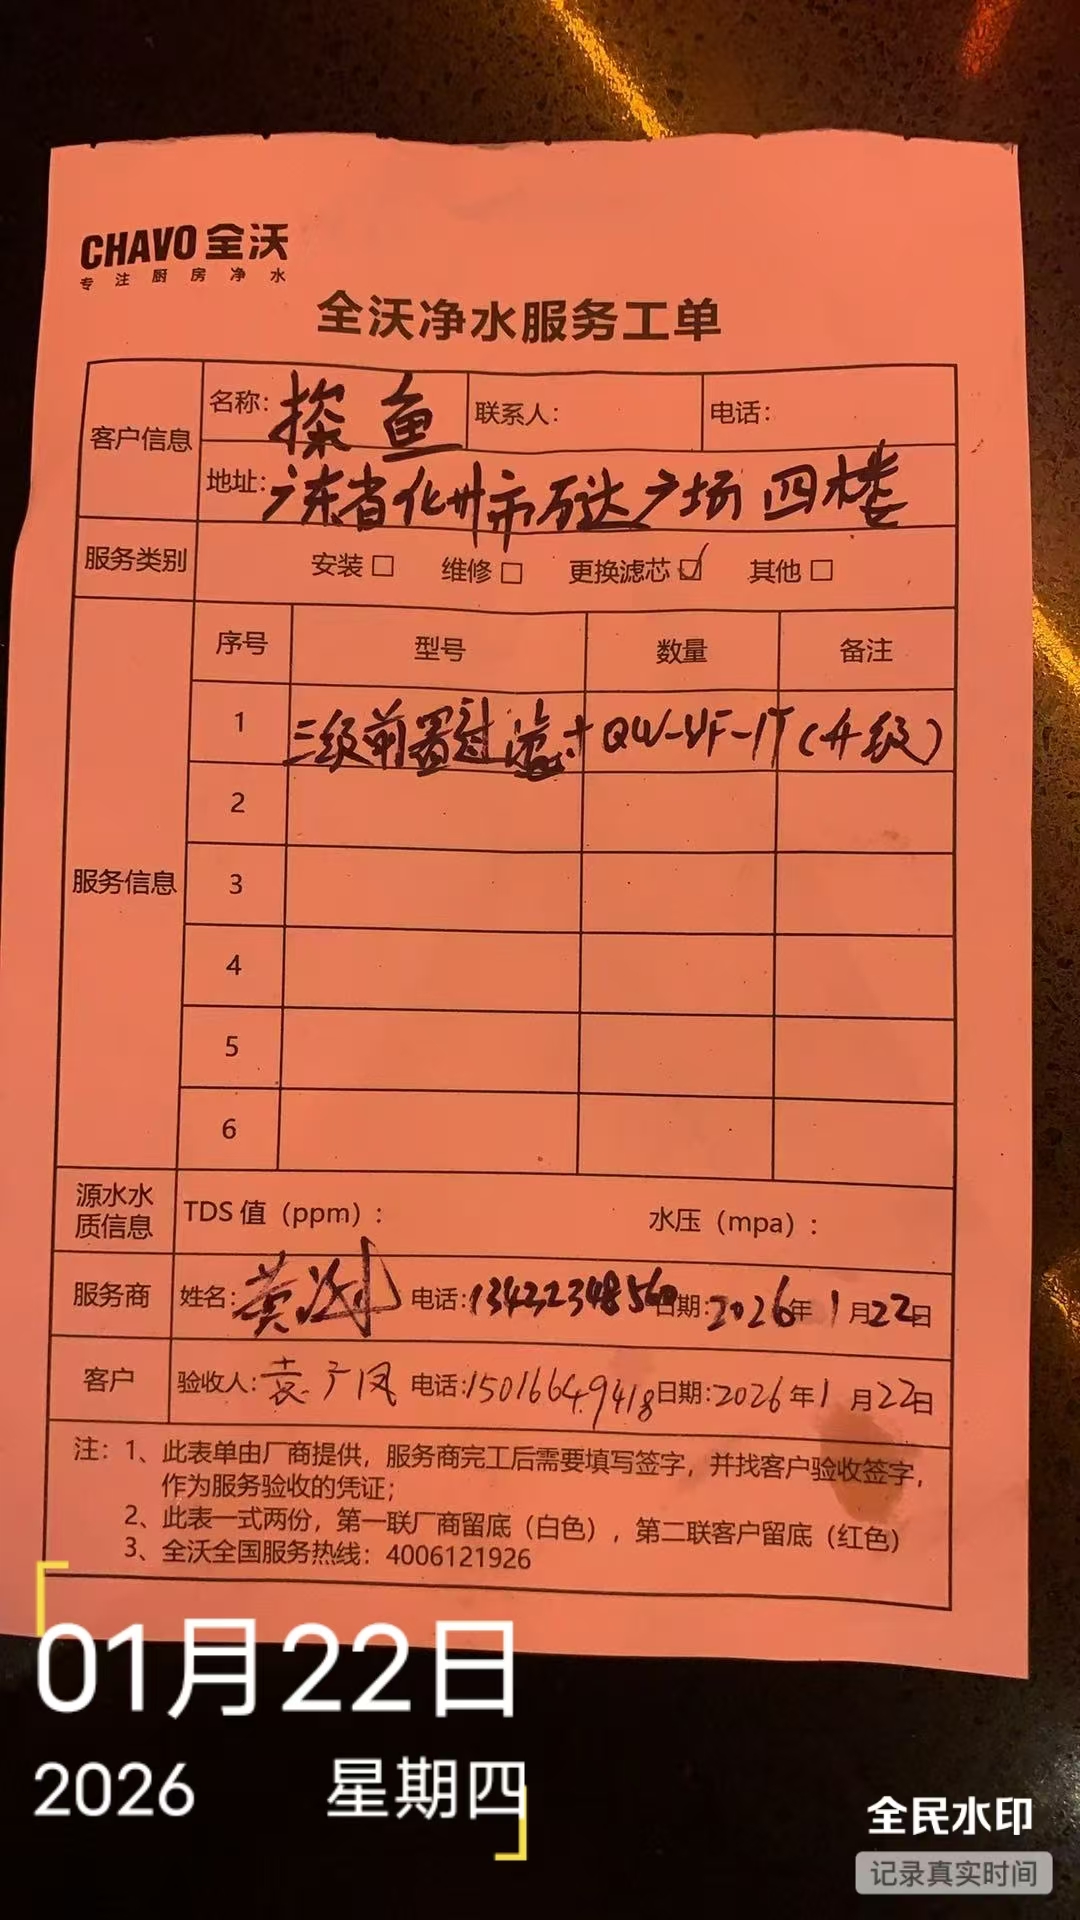 CHAVO 全沃
专注厨房净水
全沃净水服务工单
客户信息 名称：探鱼 联系人： 电话：
地址：广东省化州市万达广场四楼
服务类别 安装□ 维修□ 更换滤芯☑ 其他□
服务信息 序号 型号 数量 备注
1 三级前置过滤+QW-UF-1T(升级)
2
3
4
5
6
源水水质信息 TDS 值（ppm）： 水压（mpa）：
服务商 姓名：黄 电话：13432348560 日期：2026年1月22日
客户 验收人：袁广凤 电话：15016649418 日期：2026年1月22日
注：1、此表单由厂商提供，服务商完工后需要填写签字，并找客户验收签字，
作为服务验收的凭证；
2、此表一式两份，第一联厂商留底（白色），第二联客户留底（红色）
3、全沃全国服务热线：4006121926
01月22日
2026 星期四
全民水印
记录真实时间